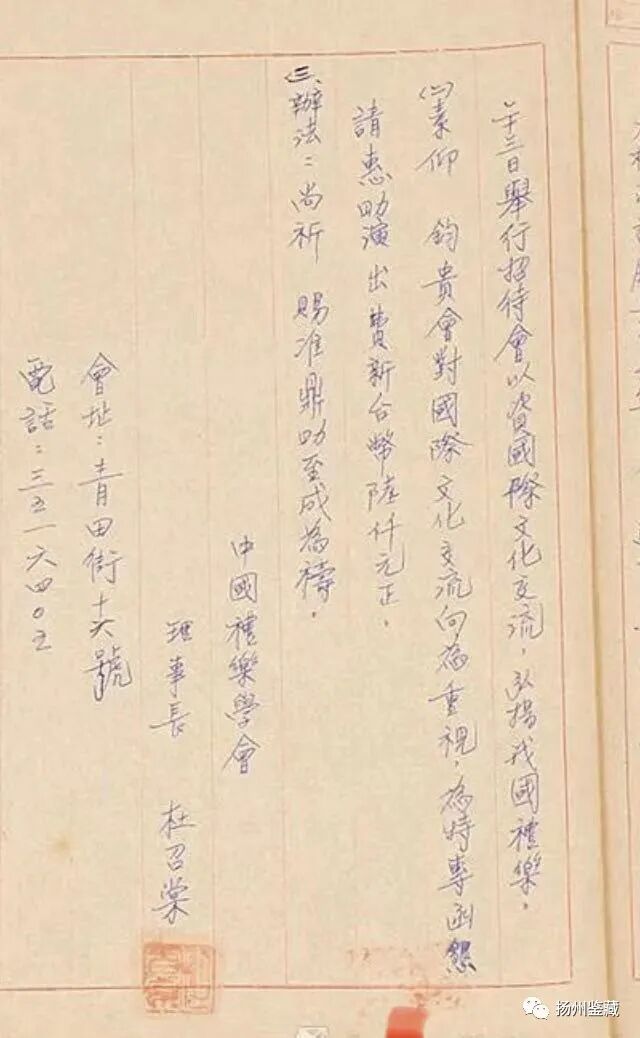 廿三日舉行招待會以資國際文化交流，弘揚我國禮樂。
(二)素仰　鈞貴會對國際文化交流向為重視，為特專函懇
請惠助演出費新台幣陸仟元正。
(三)辦法：尚祈　賜准鼎助至成為禱。
中國禮樂學會
理事長　杜召棠
會址：青田街十六號
電話：三五一六四〇五
扬州鉴藏